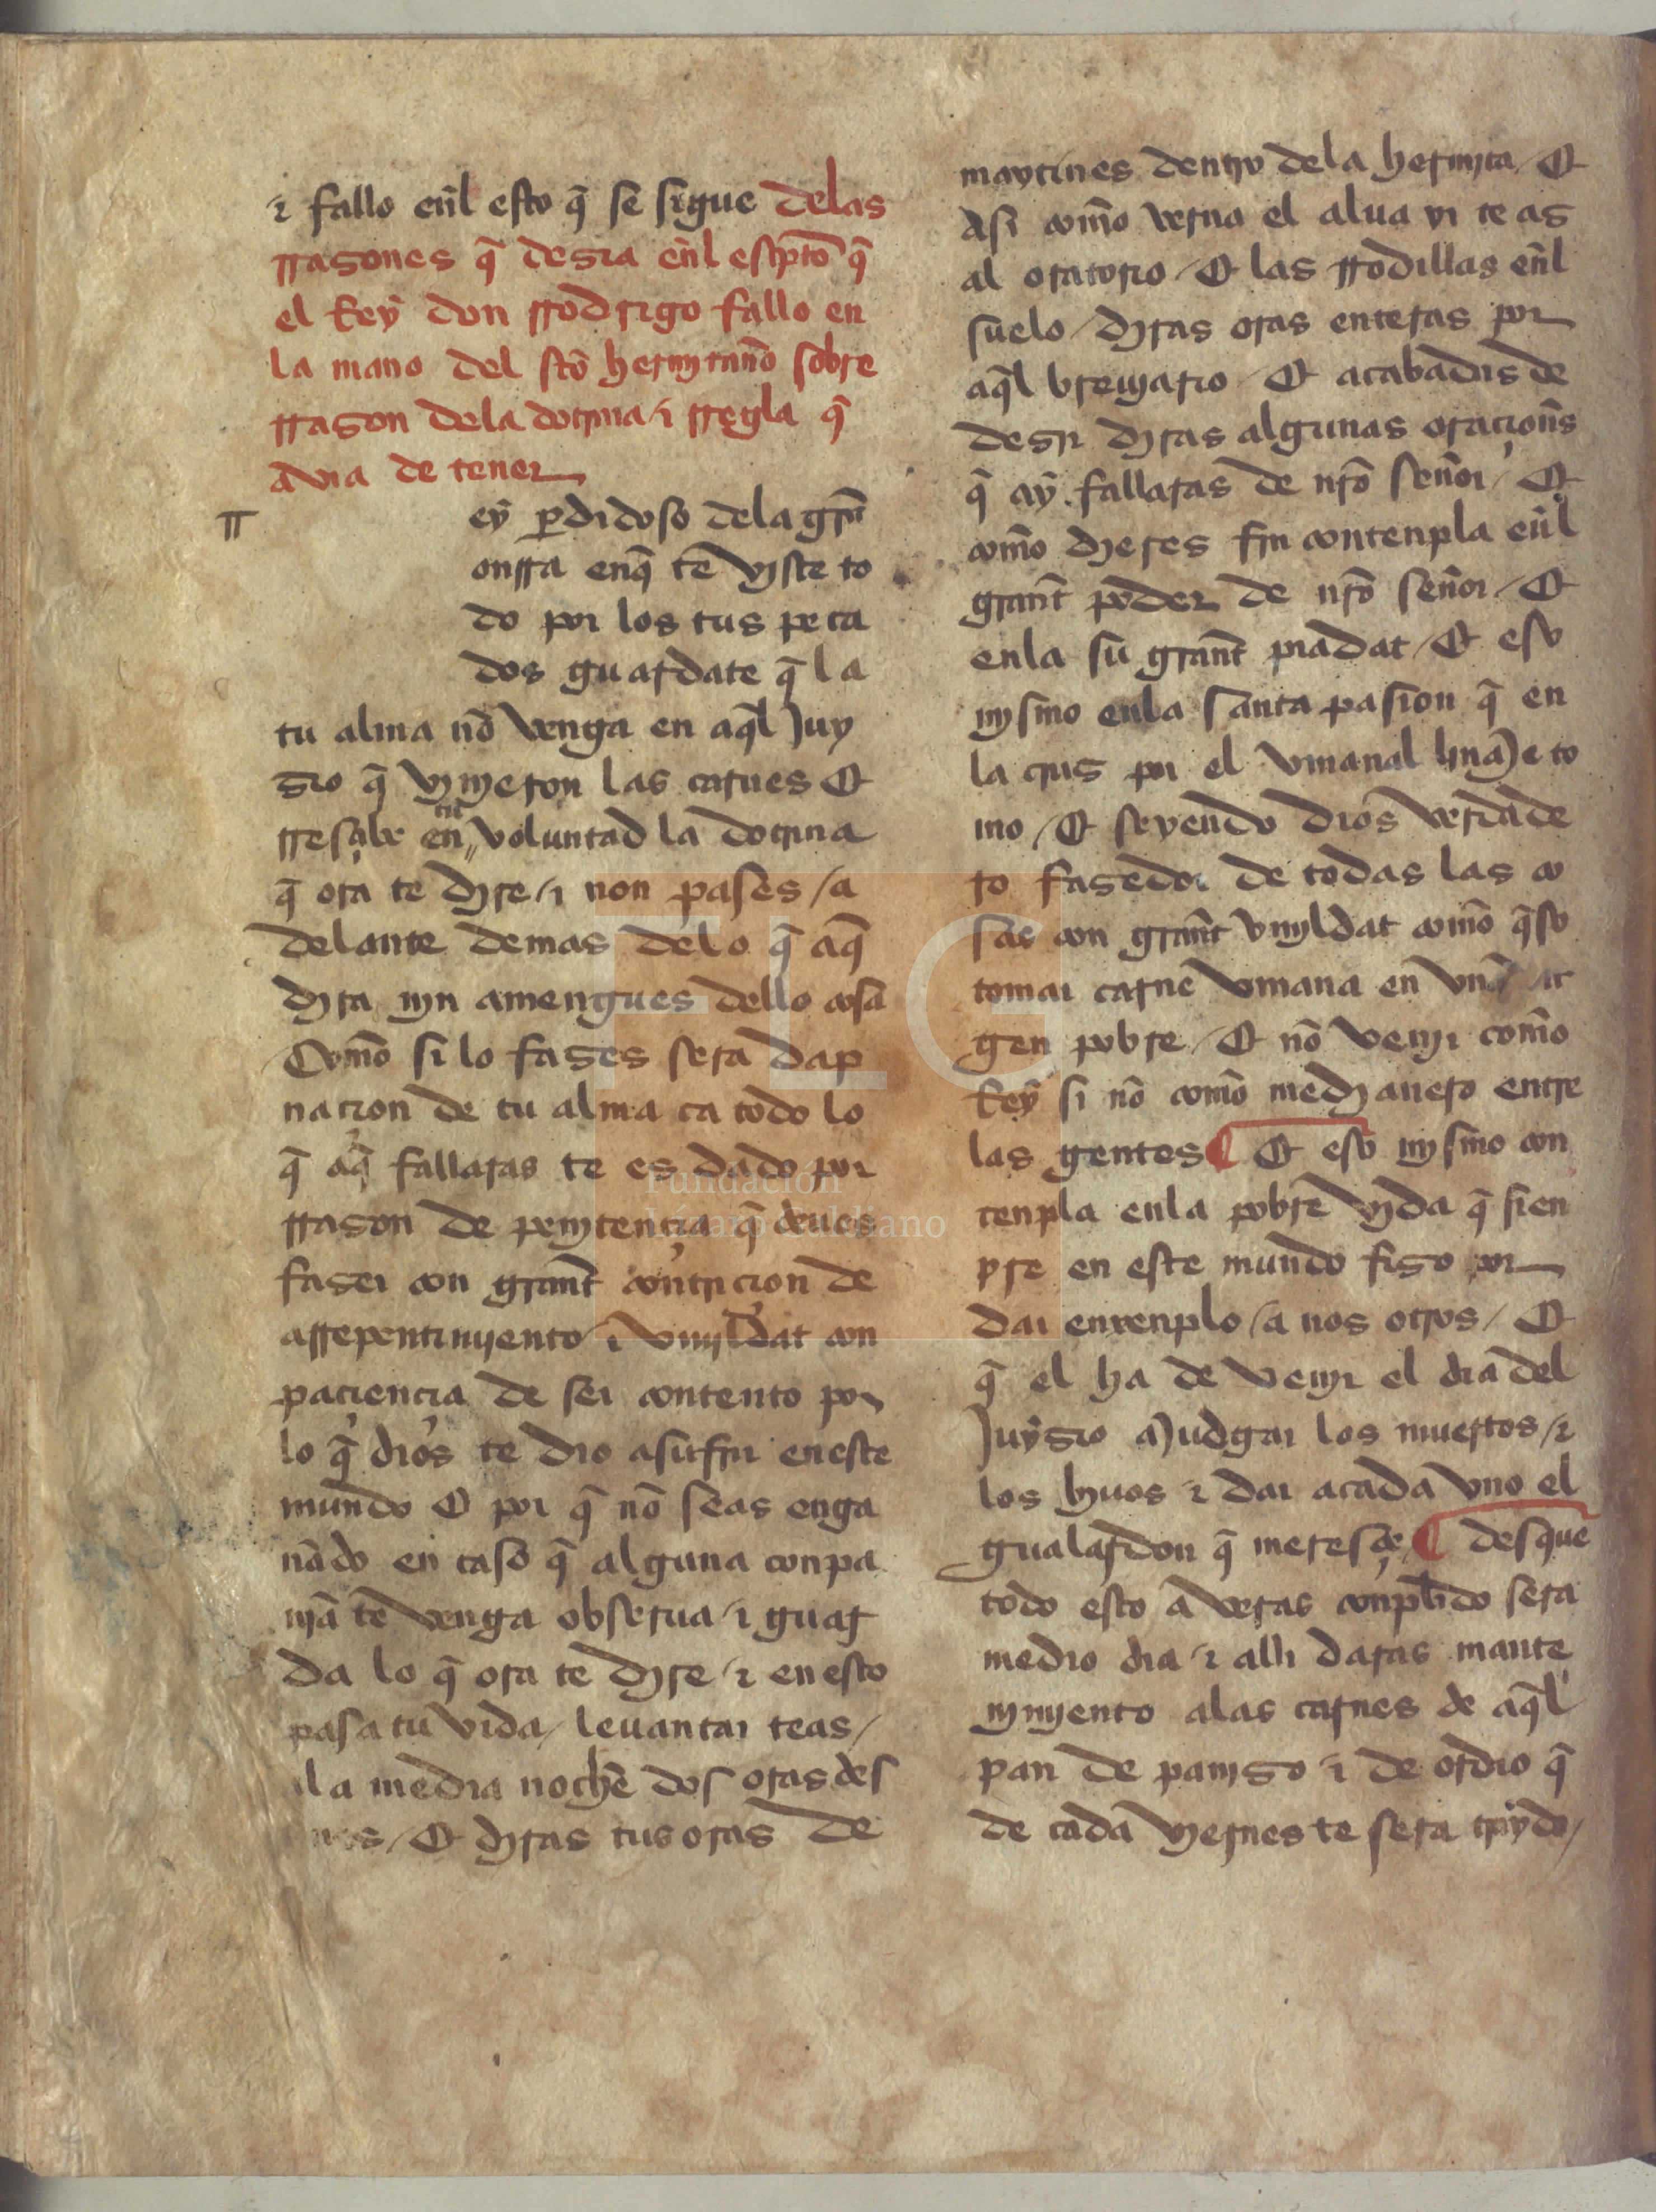 τ fallo enl̃ esto q̃ se sigue delas
rrazones q̃ dezia enl̃ esc͡pto q̃
el Rey don rrodrigo fallo en
la mano del sto͂ hermytan̄o sobre
rrazon dela dotrina τ rregla q̃
avia de tener
rr
ey ꝑdidoso dela gra͂
onrra enq̃ te viste to
do por los tus peca
dos guardate q̃ la
tu alma no͂ venga en aq̃l Juy
zio q̃ vynjeron las carnes Et
rresçibe en tu voluntad la dotrina
q̃ ora te dire / τ non pases / a
delante demas delo q̃ aq̃
dira njn amengues dello cosa
Com̃o si lo fazes sera dap
naçion de tu alma ca todo lo
q̃ aq̃ fallaras te es dado por
rrazon de penjtençia q̃ deues
fazer con grañt contriçion de
arrepentimjento / τ vmjldat con
paçiençia de ser contento por
lo q̃ dios te dio asufrir eneste
mundo E por q̃ no͂ seas enga
n̄ado en caso q̃ alguna conpa
n̄ja te venga obserua / τ guar
da lo q̃ ora te dire / τ enesto
pasa tu vida / leuantar teas /
ala media noche dos oras des
Et diras tus oras de
maytines dentro dela hermjta / Et
Asi com̃o verna el alua yr te as
al oratorio / Et las rrodillas enl̃
suelo / diras oras enteras por
aq̃l breujario / Et acabadas de
dezir diras algunas oraçion̄s
q̃ ay fallaras de nr̃o sen̄or / Et
com̃o dieres fin contenpla enl̃
grañt poder de nr̃o sen̄or / Et
enla su grañt piadat / Et eso
mjsmo enla santa pasion q̃ en
la cruz por el vmanal linaJe to
mo / Et seyendo dios verdade
ro fazedor de todas las co
sas con grañt vmjldat com̃o q̃so
tomar carne vmana en vna vir
gen pobre / Et no͂ venjr com̃o
Rey si no͂ com̃o medianero entre
las gentes ¶ Et eso mjsmo con
tenpla enla pobre vida q̃ sien
pre en este mundo fizo por
dar enxenplo / a nos otros / Et
q̃ el ha de venjr el dia del
Juyzio aJudgar los muertos / τ
los biuos τ dar acada vno el
gualardon q̃ meresçe ¶ desque
todo esto a veras conplido sera
medio dia / τ alli daras mante
njmjento alas carnes de aq̃l
pan de panjzo τ de ordio q̃
de cada viernes te sera traydo /
Fundación
Lázaro Galdiano
FLG